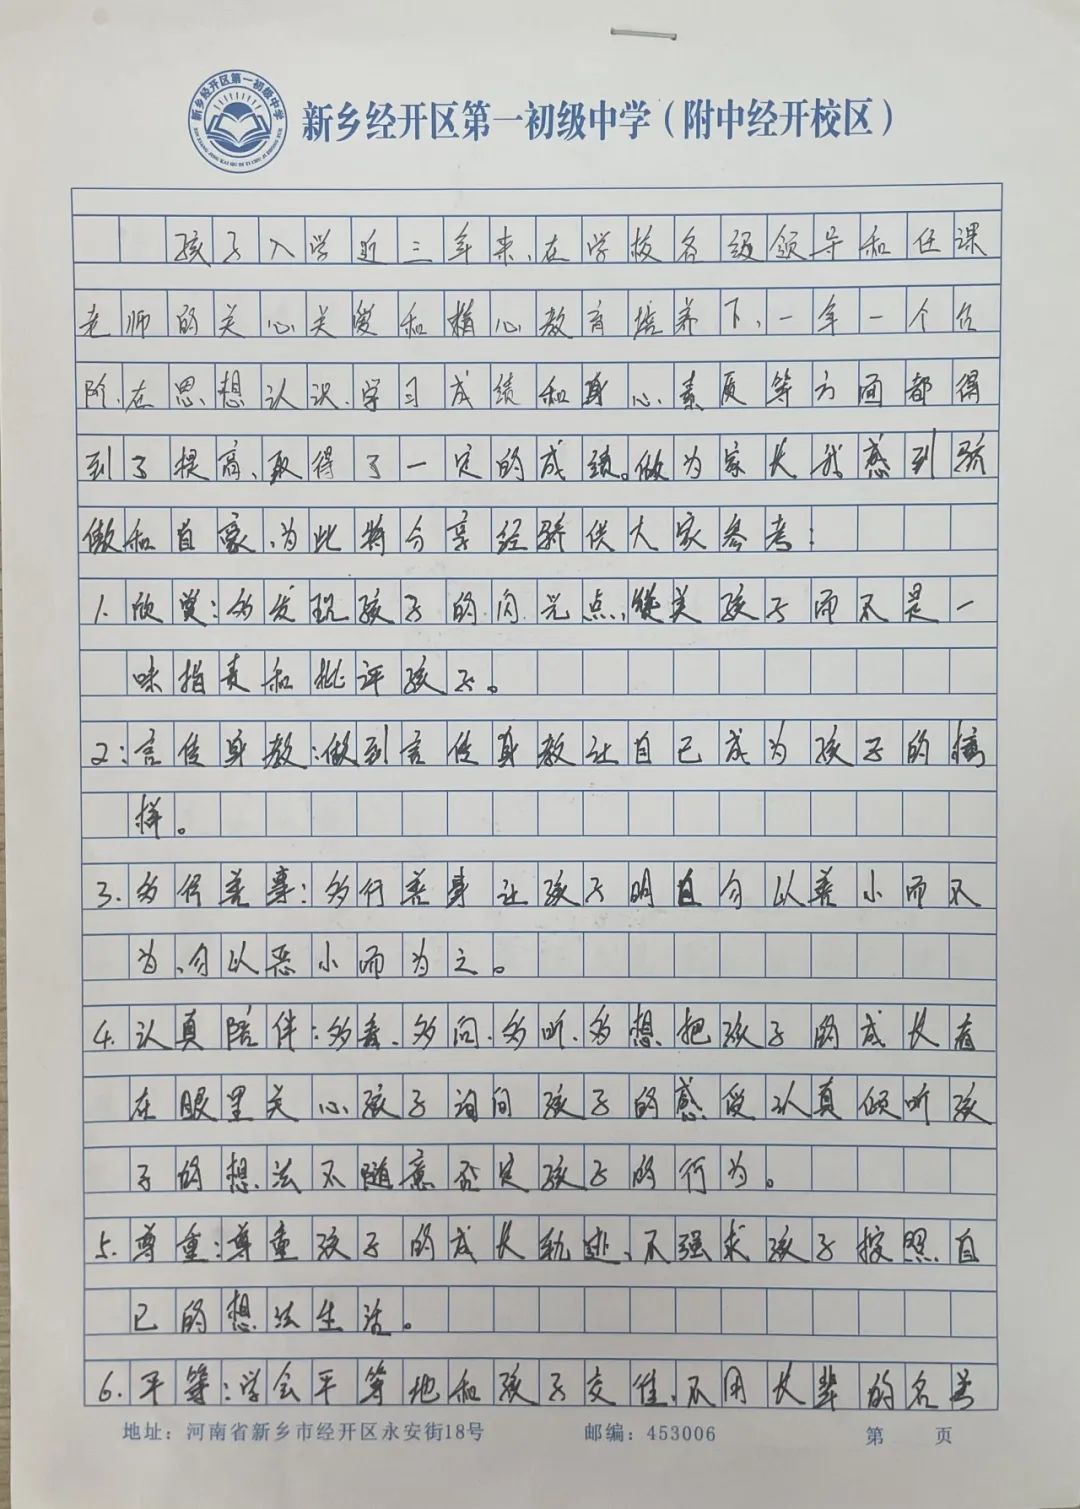 新乡经开区第一初级中学
新乡经开区第一初级中学（附中经开校区）
孩子入学近三年来、在学校各级领导和任课
老师的关心关爱和精心教育培养下、一年一个台
阶、在思想认识、学习成绩和身心素质等方面都得
到了提高、取得了一定的成绩。做为家长我感到骄
傲和自豪、为此将分享经验供大家参考：
1. 欣赏：多发现孩子的闪光点、赞美孩子而不是一
味指责和批评孩子。
2：言传身教：做到言传身教让自己成为孩子的榜
样。
3. 多行善事：多行善事让孩子明白勿以善小而不
为、勿以恶小而为之。
4. 认真陪伴：多看、多问、多听、多想把孩子的成长看
在眼里关心孩子询问孩子的感受认真倾听孩
子的想法不随意否定孩子的行为。
5. 尊重：尊重孩子的成长轨迹、不强求孩子按照自
己的想法生活。
6. 平等：学会平等地和孩子交往、不用长辈的名义
地址：河南省新乡市经开区永安街18号 邮编：453006 第 页